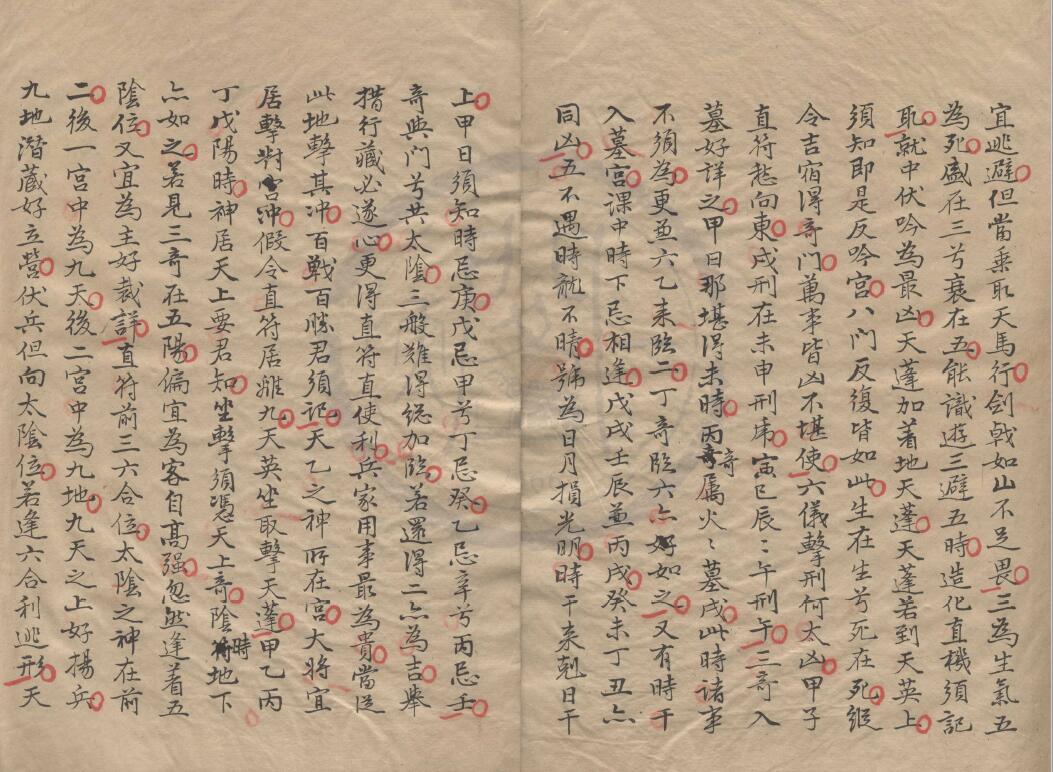 宜逃避但當乘取天馬行劍戟如山不足畏三為生氣五
為死盛在三兮衰在五能識遊三避五時造化真機須記
取就中伏吟為最凶天蓬加着地天蓬天蓬若到天英上
須知即是反吟宮八門反復皆如此生在生兮死在死縱
令吉宿得奇門萬事皆凶不堪使六儀擊刑何太凶甲子
直符愁向東戌刑在未申刑虎寅巳辰〻午刑午三奇入
墓好詳之甲日那堪得未時丙奇屬火〻墓戌此時諸事
不須為更兼六乙來臨二丁奇臨六亦如之又有時干
入墓宮課中時下忌相逢戊戌壬辰並丙戌癸未丁丑亦
同凶五不遇時龍不晴號為日月損光明時干來剋日干
上甲日須知時忌庚戊忌甲兮丁忌癸乙忌辛兮丙忌壬
奇與門兮共太陰三般難得総加臨若還得二亦為吉舉
措行藏必遂心更得直符直使利兵家用事最為貴當從
此地擊其沖百戰百勝君須記天乙之神所在宮大將宜
居擊對宮沖假令直符居離九天英坐取擊天蓬甲乙丙
丁戊陽時神居天上要君知坐擊須憑天上奇陰時地下
亦如之若見三奇在五陽偏宜為客自高強忽然逢着五
陰位又宜為主好裁詳直符前三六合位太陰之神在前
二後一宮中為九天後二宮中為九地九天之上好揚兵
九地潛藏好立營伏兵但向太陰位若逢六合利逃形天